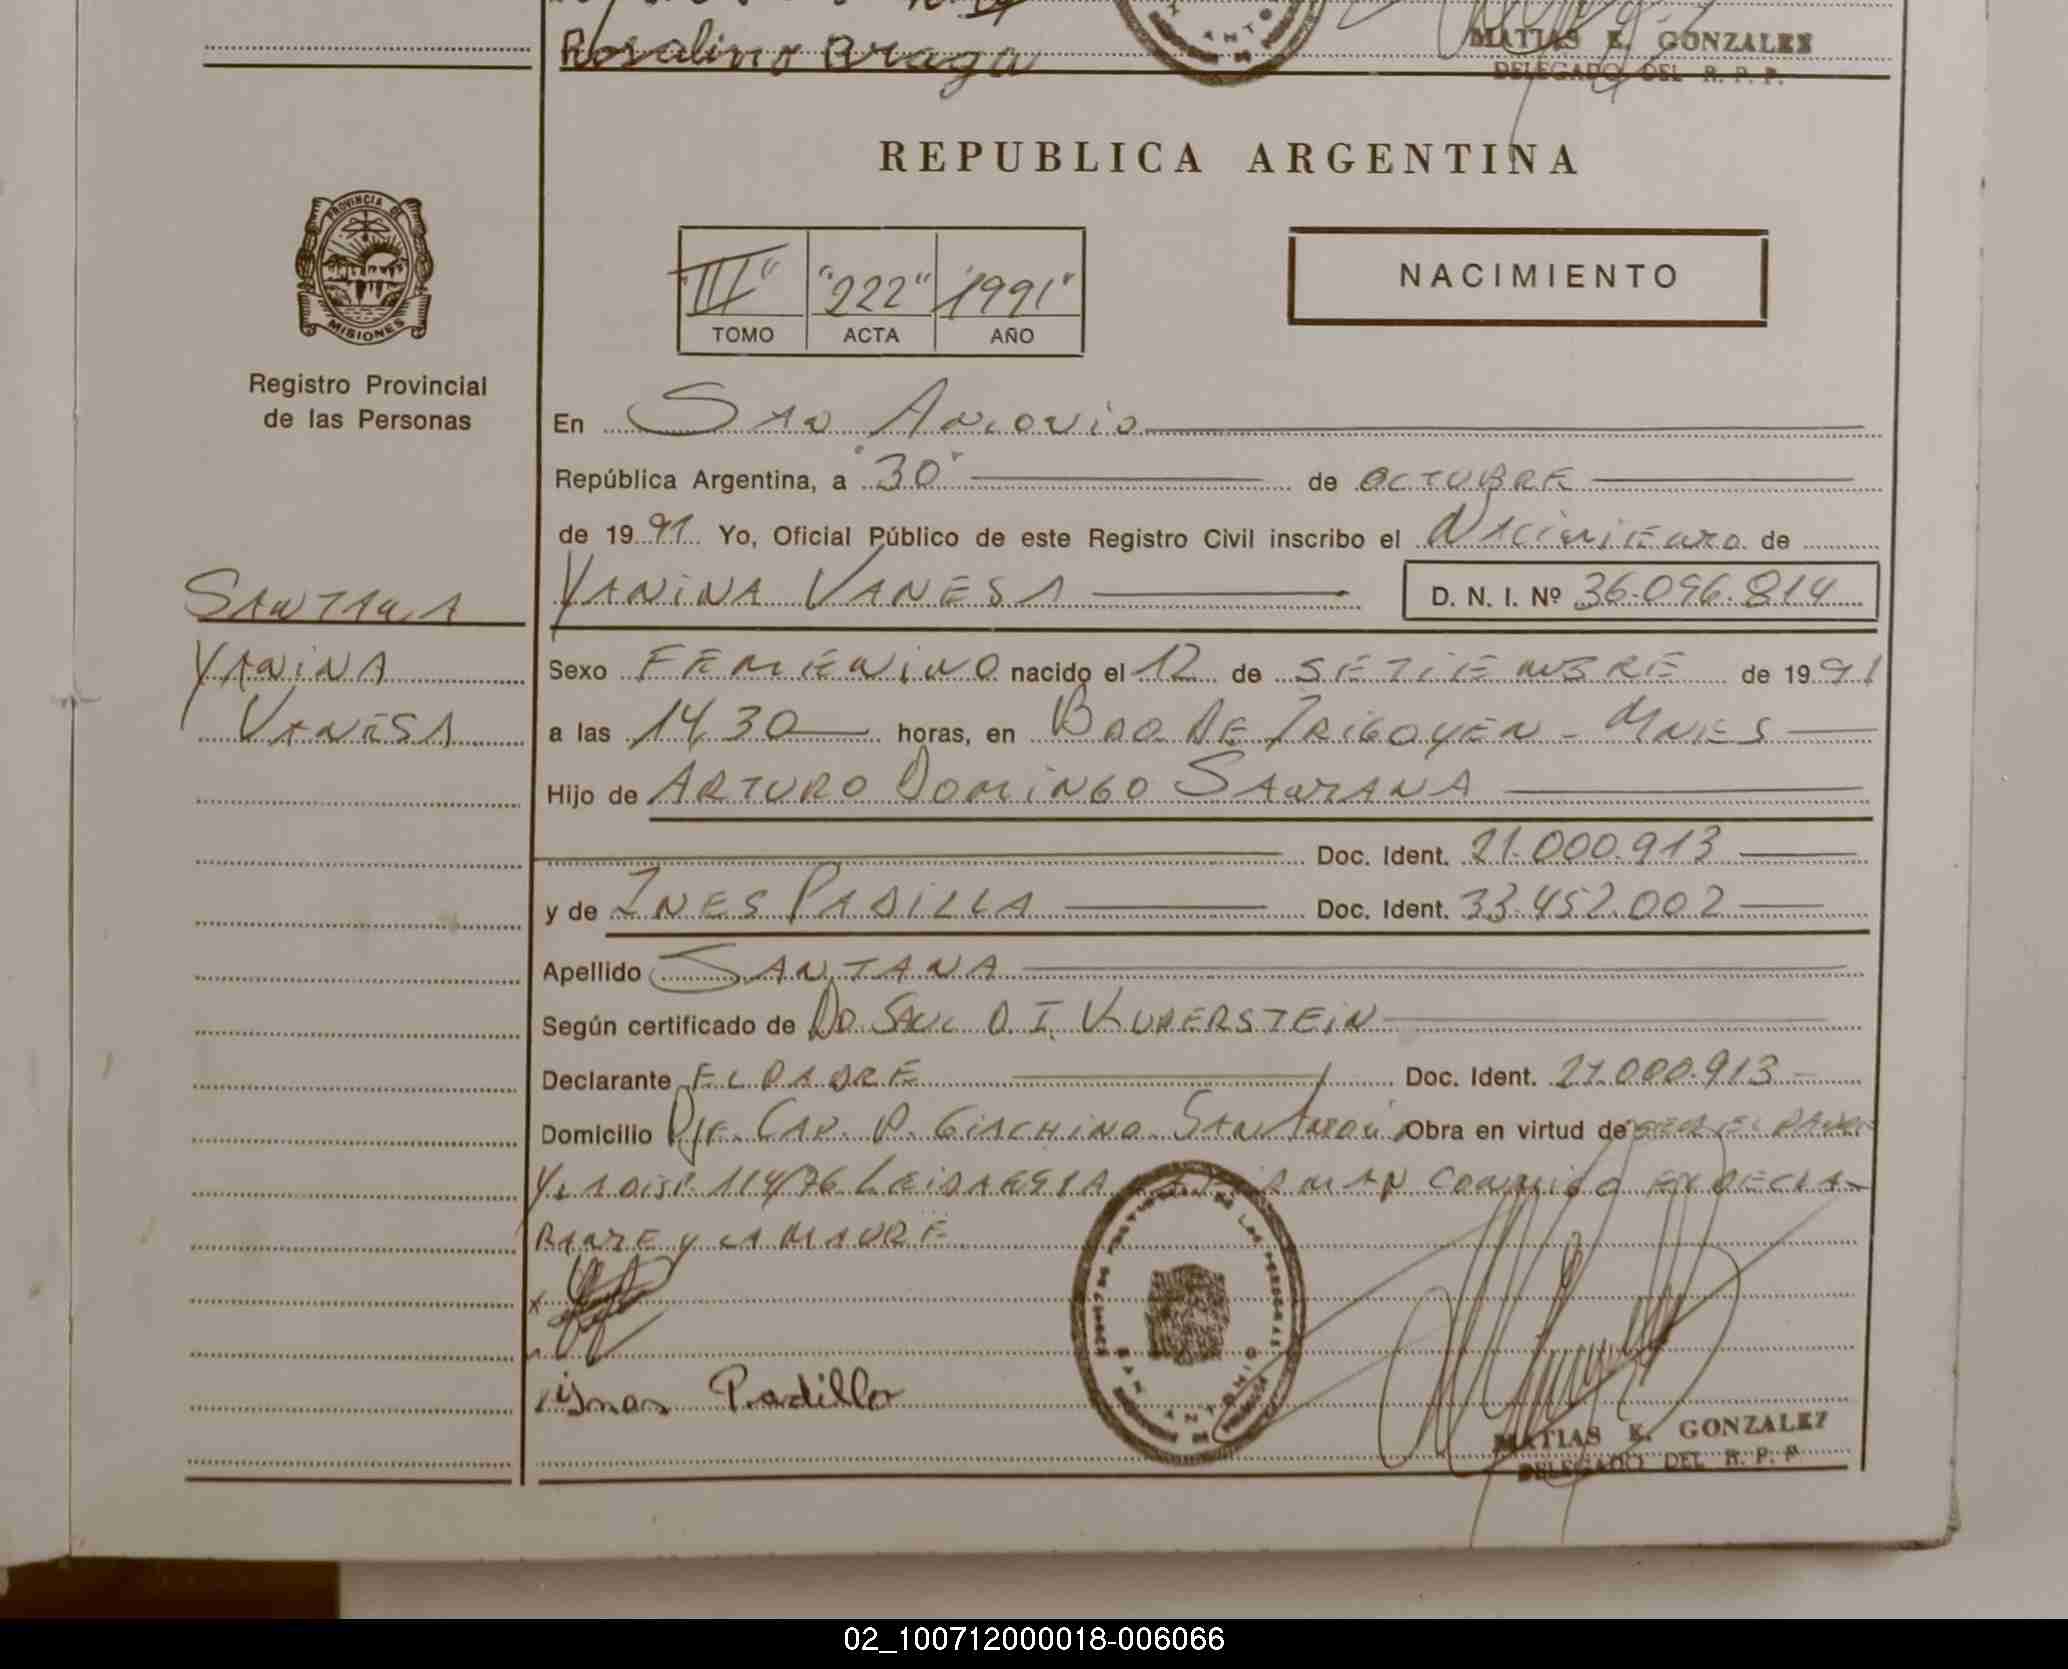 Rosalino Braga
MATIAS E. GONZALEZ
DELEGADO DEL R. P. P.
REPUBLICA ARGENTINA
PROVINCIA DE
MISIONES
"III" "222" "1991"
TOMO ACTA AÑO
NACIMIENTO
Registro Provincial
de las Personas
En San Antonio
República Argentina, a "30" de OCTUBRE
de 1991 Yo, Oficial Público de este Registro Civil inscribo el Nacimiento de
SANTANA
YANINA VANESA D. N. I. Nº 36.096.814
YANINA
VANESA
Sexo FEMENINO nacido el 12 de SETIEMBRE de 1991
a las 14,30 horas, en BDO DE IRIGOYEN - MNES
Hijo de ARTURO DOMINGO SANTANA
Doc. Ident. 21.000.913
y de INES PADILLA Doc. Ident. 33.452.002
Apellido SANTANA
Según certificado de DR SAUL O. I. KUPERSTEIN
Declarante EL PADRE Doc. Ident. 21.000.913
Domicilio Pje. CAP. P. GIACHINO SAN Antonio, Obra en virtud de
Y LA DISP. 114/76 LEIDA ESTA FIRMAN CONMIGO EL DECLA-
RANTE Y LA MADRE
x
Padilla
SAN ANTONIO
MATIAS E. GONZALEZ
DELEGADO DEL R. P. P.
02_100712000018-006066